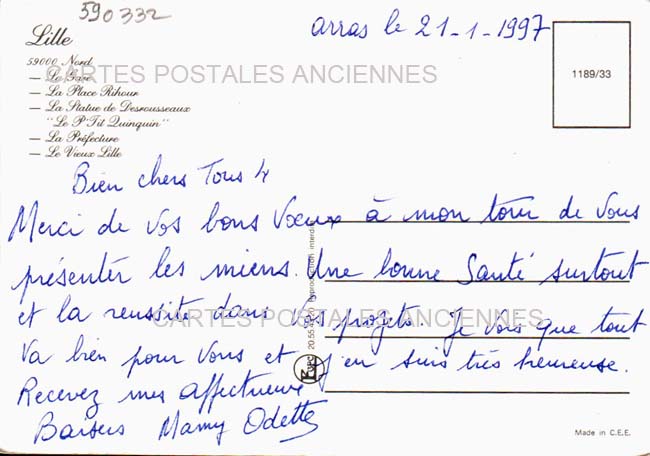 590332
Lille
59000 Nord
— La Gare
— La Place Rihour
— La Statue de Desrousseaux
"Le P'Tit Quinquin"
— La Préfecture
— Le Vieux Lille
CARTES POSTALES ANCIENNES
arras le 21-1-1997
1189/33
Bien chers Tous 4
Merci de vos bons Voeux à mon tour de vous
présenter les miens. Une bonne Santé surtout
et la reussite dans vos projets. Je vois que tout
va bien pour vous et j'en suis très heureuse.
Recevez mes affectueux
Baisers Mamy Odette
CARTES POSTALES ANCIENNES
reproduction interdite
Made in C.E.E.